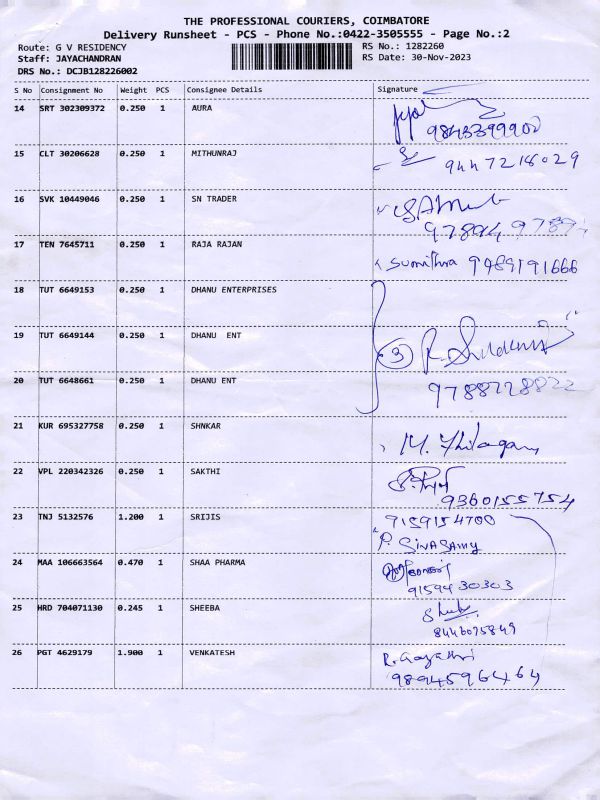 THE PROFESSIONAL COURIERS, COIMBATORE
Delivery Runsheet - PCS - Phone No.:0422-3505555 - Page No.:2
Route: G V RESIDENCY
Staff: JAYACHANDRAN
DRS No.: DCJB128226002
RS No.: 1282260
RS Date: 30-Nov-2023
S No Consignment No Weight PCS Consignee Details Signature
14 SRT 302309372 0.250 1 AURA
9843399900
15 CLT 30206628 0.250 1 MITHUNRAJ
9447218029
16 SVK 10449046 0.250 1 SN TRADER
17 TEN 7645711 0.250 1 RAJA RAJAN Sumithra 9489191666
18 TUT 6649153 0.250 1 DHANU ENTERPRISES
19 TUT 6649144 0.250 1 DHANU ENT
3
20 TUT 6648661 0.250 1 DHANU ENT
9788228822
21 KUR 695327758 0.250 1 SHNKAR
M. Thilagam
22 VPL 220342326 0.250 1 SAKTHI
9360155754
23 TNJ 5132576 1.200 1 SRIJIS 9159154700
P. SIVASAMY
24 MAA 106663564 0.470 1 SHAA PHARMA
9159430303
25 HRD 704071130 0.245 1 SHEEBA
8446075849
26 PGT 4629179 1.900 1 VENKATESH R. Gayathri
9894596464